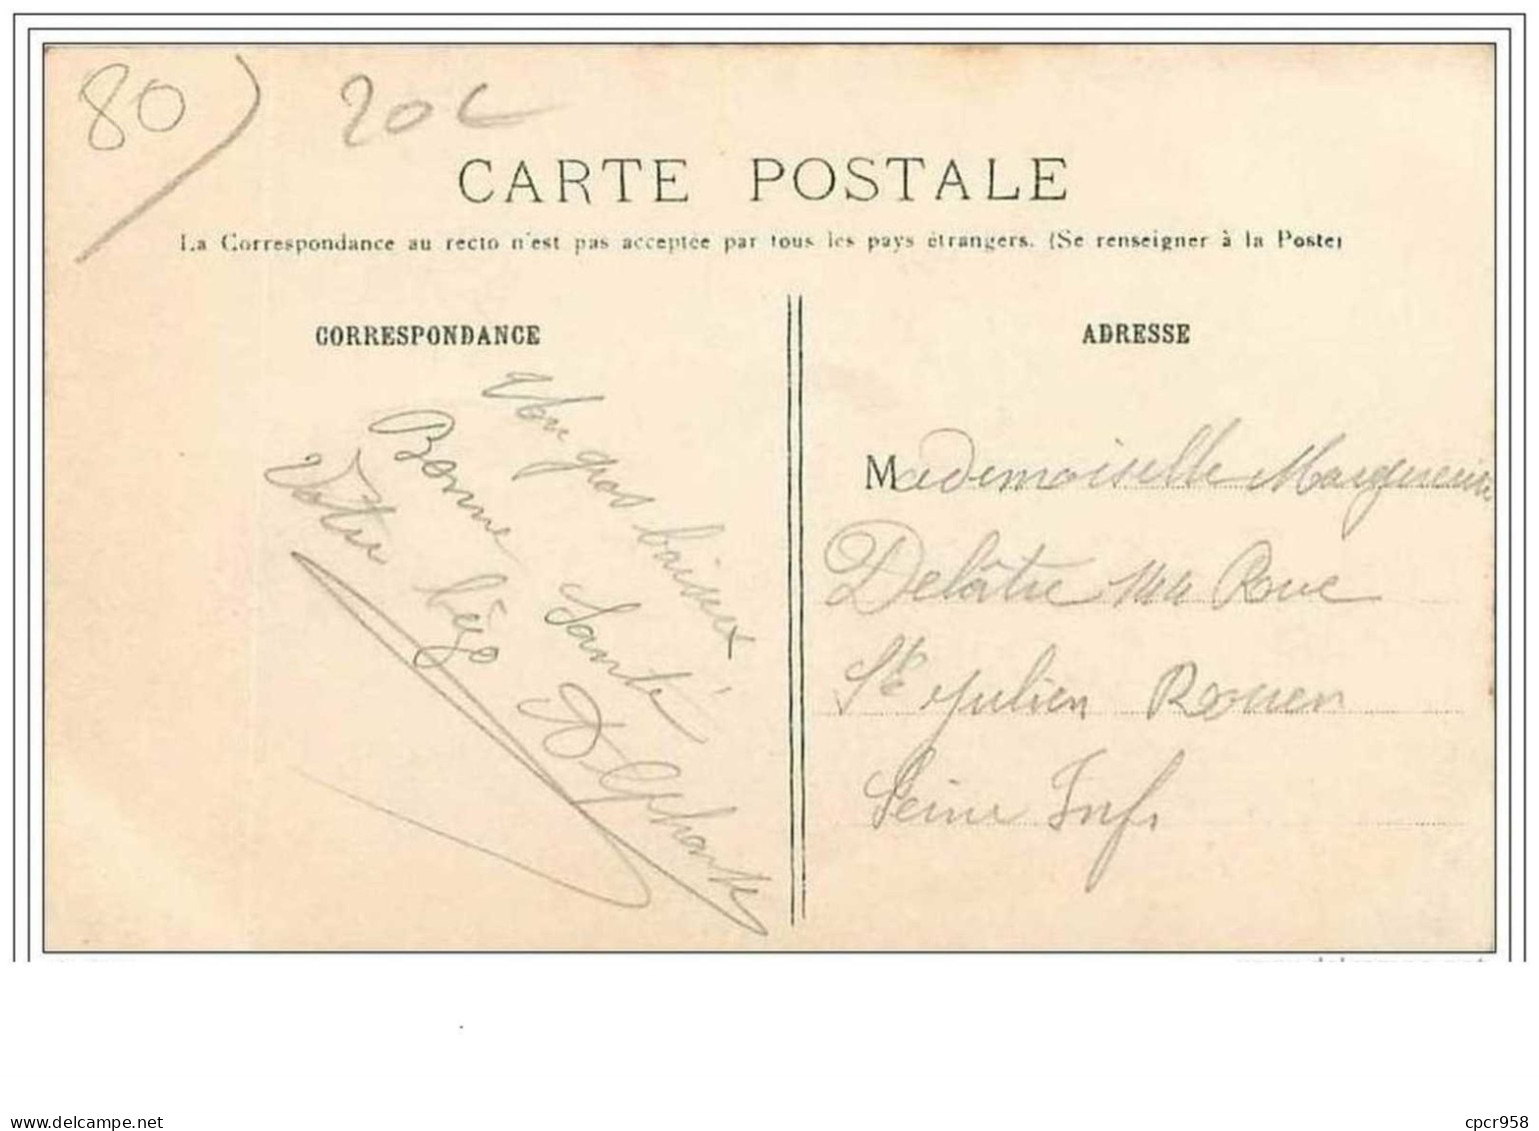 80) 20c
CARTE POSTALE
La Correspondance au recto n'est pas acceptée par tous les pays étrangers. (Se renseigner à la Poste)
CORRESPONDANCE
gros baiseux
Bonne Santé
Votre
ADRESSE
Mademoiselle Marguerite
Delâtre Rue
St Julien Rouen
Seine Inf.
www.delcampe.net
cpcr958